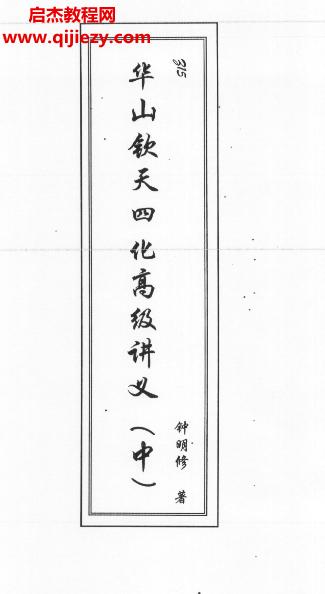 启杰教程网
www.qijiezy.com
315
华山钦天四化高级讲义（中）
钟明修 著